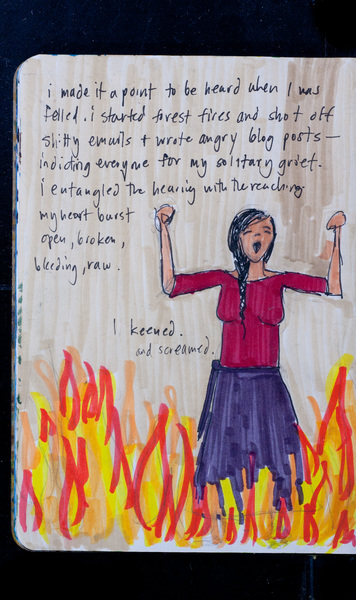 i made it a point to be heard when I was
felled. i started forest fires and shot off
shitty emails + wrote angry blog posts —
indicting everyone for my solitary grief.
I entangled the hearing with the reaching.
my heart burst
open, broken,
bleeding, raw.
I keened.
and screamed.